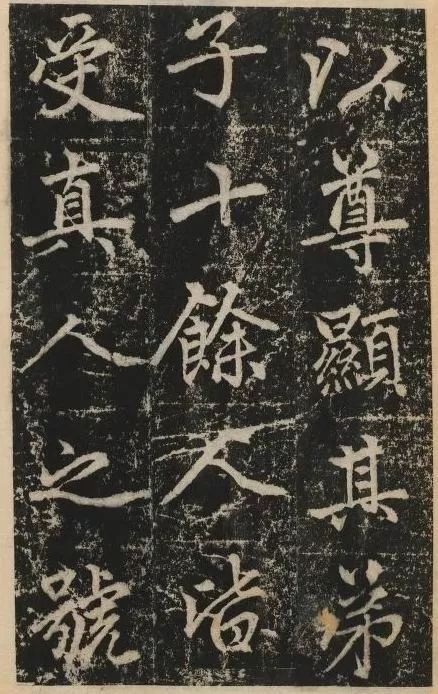 以尊顯其弟
子十餘人皆
受真人之號